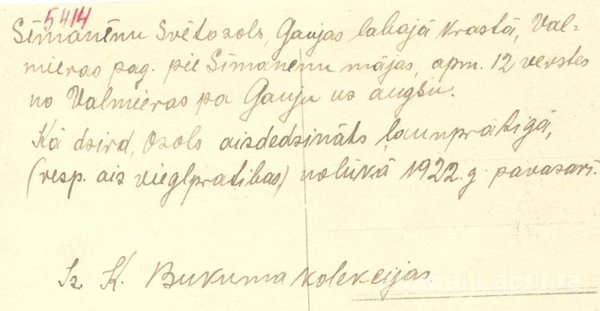 5414
Sīmanēnu Svētozols, Gaujas labajā krastā, Val-
mieras pag. pie Sīmanēnu mājas, apm. 12 verstes
no Valmieras pa Gauju uz augšu.
Kā dzird, Ozols aizdedzināts ļaunprātīgā,
(resp. aiz vieglprātības) nolūkā 1922. g. pavasarī.
Iz K. Bukuma kolekcijas